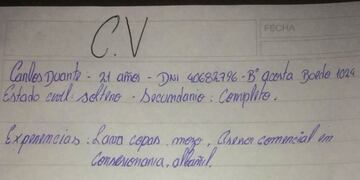 FECHA
C.V
Carlos Duarte - 21 años - DNI 40682796 - Bº Acosta Boedo 1029
Estado civil: soltero - Secundario: Completo.
Experiencias: Lava copas, mozo, Asesor comercial en
Consesionaria, albañil.